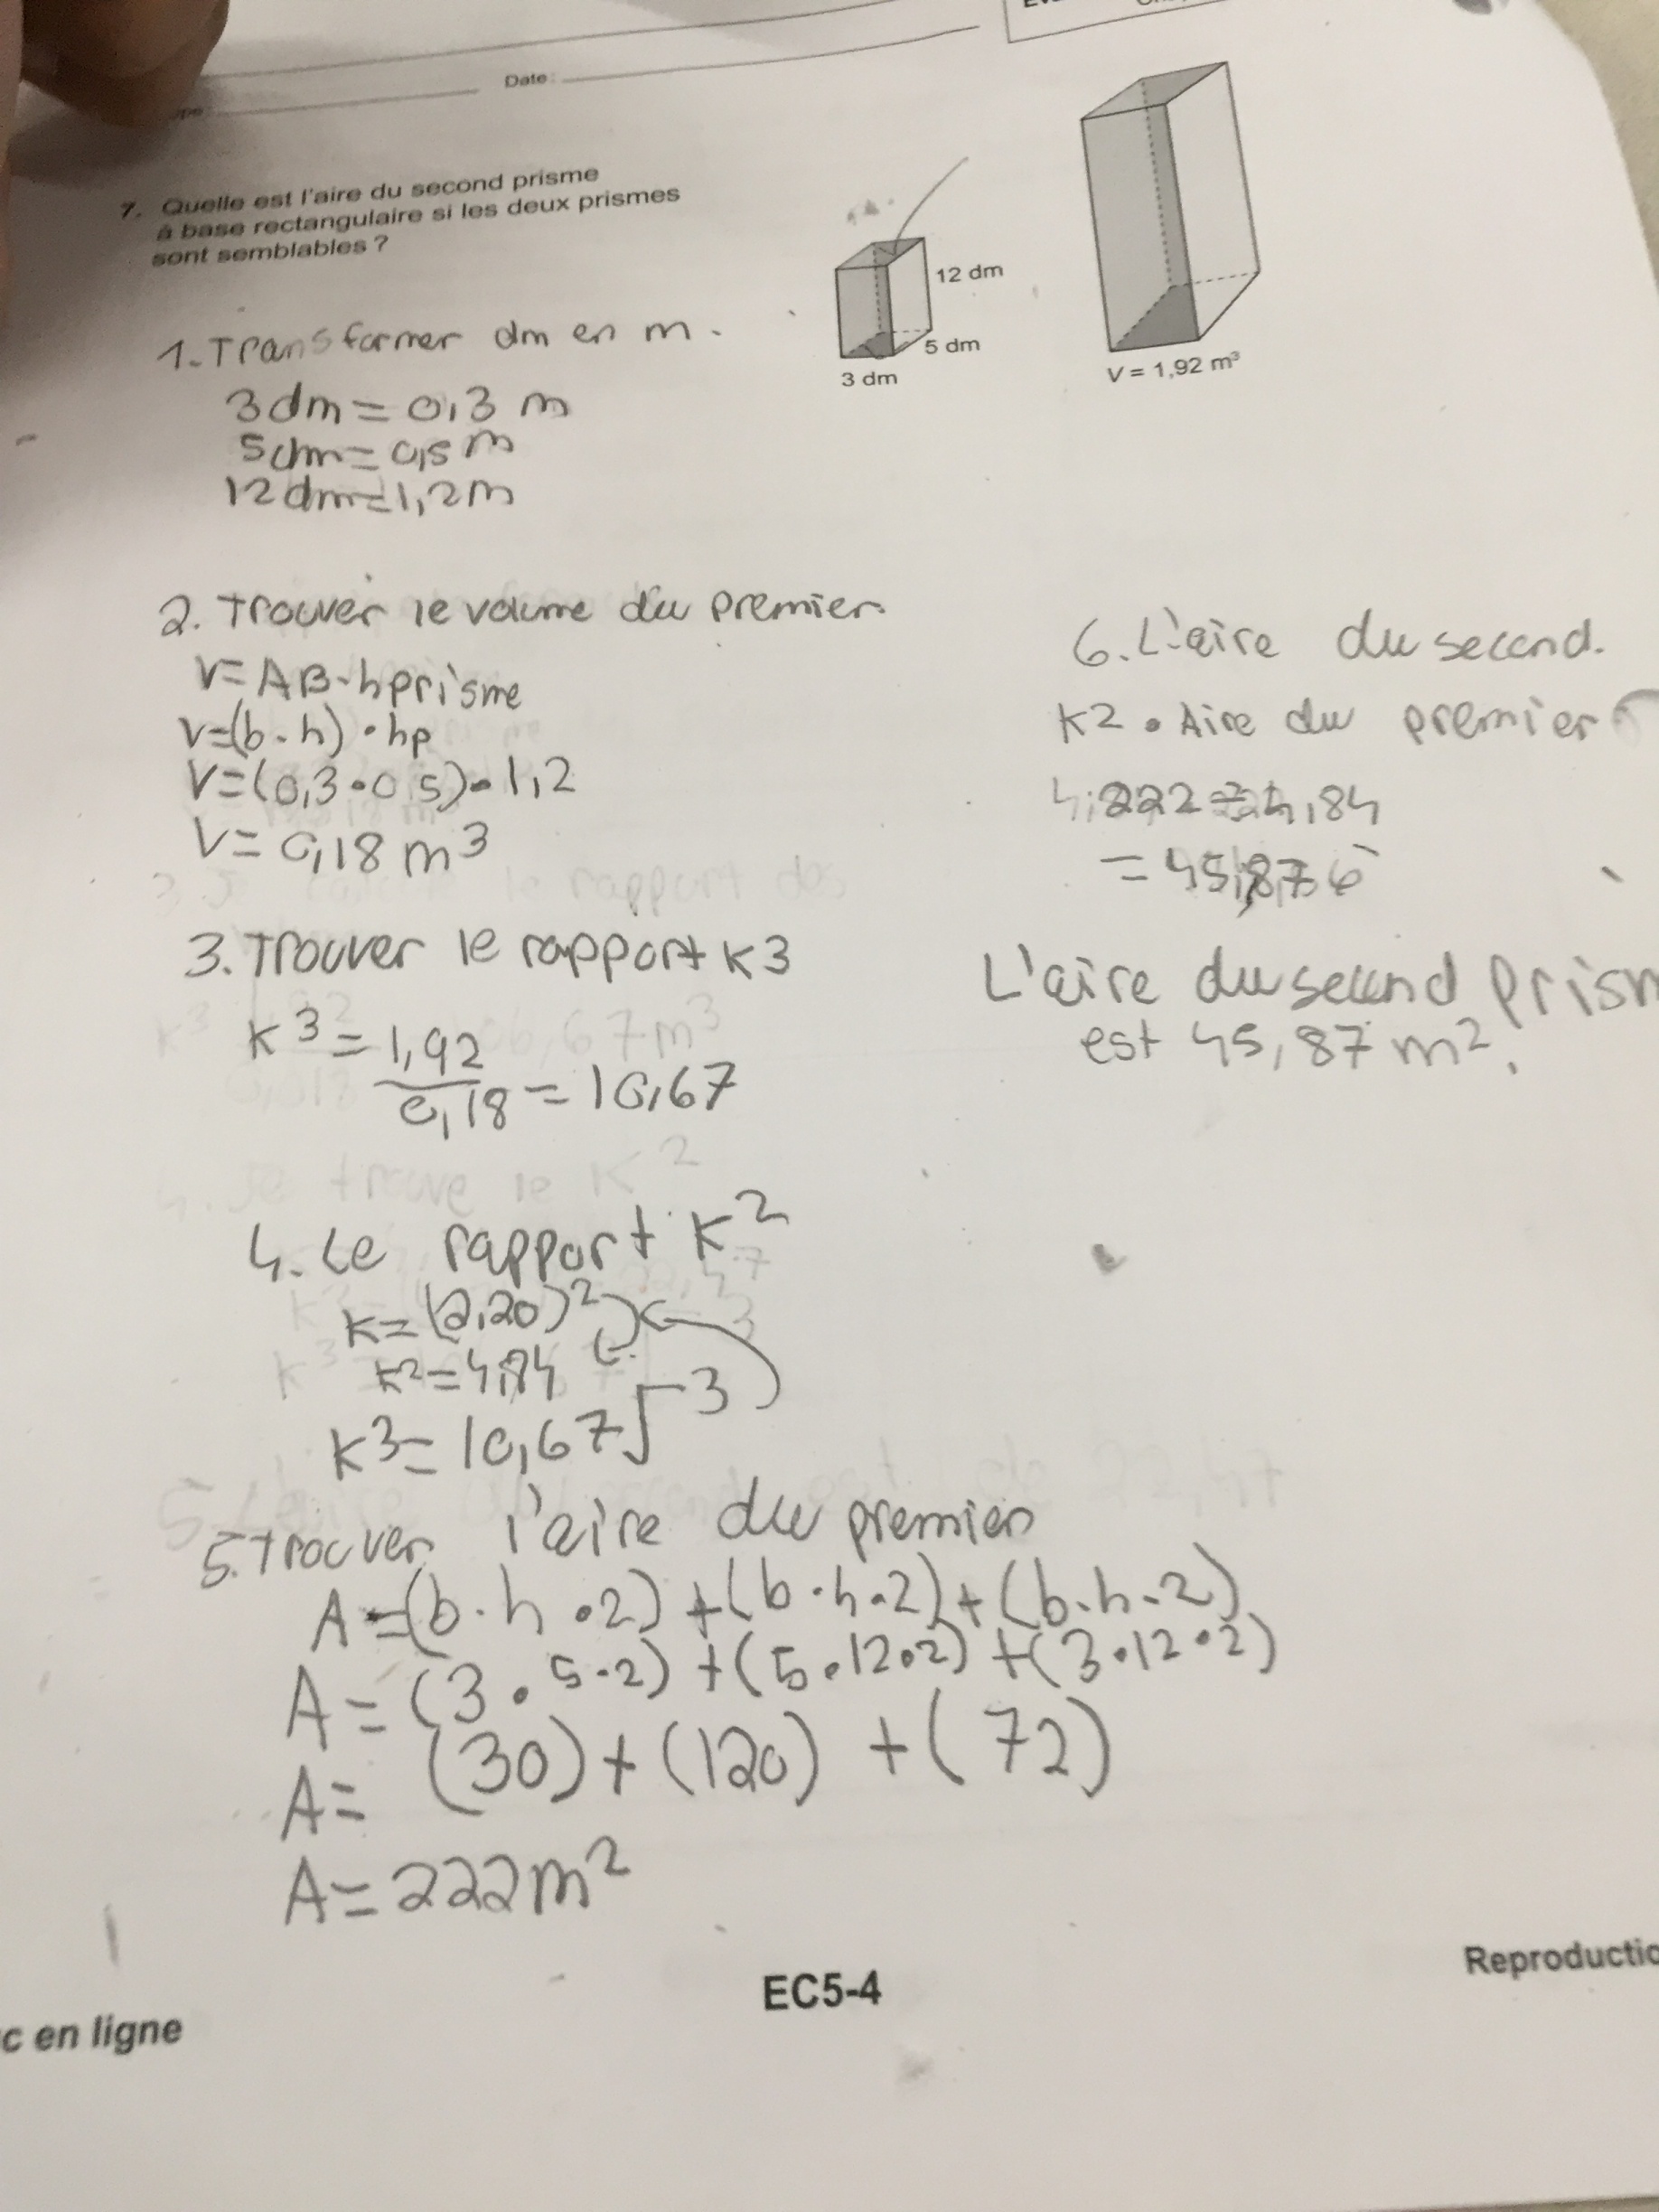 Date :
7. Quelle est l'aire du second prisme
à base rectangulaire si les deux prismes
sont semblables ?
12 dm
5 dm
3 dm
V = 1,92 m³
1. Transformer dm en m.
3 dm = 0,3 m
5 dm = 0,5 m
12 dm = 1,2 m
2. Trouver le volume du premier.
V = AB · h prisme
V = (b · h) · hp
V = (0,3 · 0,5) · 1,2
V = 0,18 m3
3. Trouver le rapport K3
K3 = 1,92
0,18 = 10,67
4. Le rapport K2
K = (2,20)2
K2 = 4,84
K3 = 10,67 √3
5. Trouver l'aire du premier
A = (b · h · 2) + (b · h · 2) + (b · h · 2)
A = (3 · 5 · 2) + (5 · 12 · 2) + (3 · 12 · 2)
A = (30) + (120) + (72)
A = 222 m2
6. L'aire du second.
K2 · Aire du premier
= 45,876
L'aire du second prism
est 45,87 m2.
EC5-4
Reproductio
c en ligne